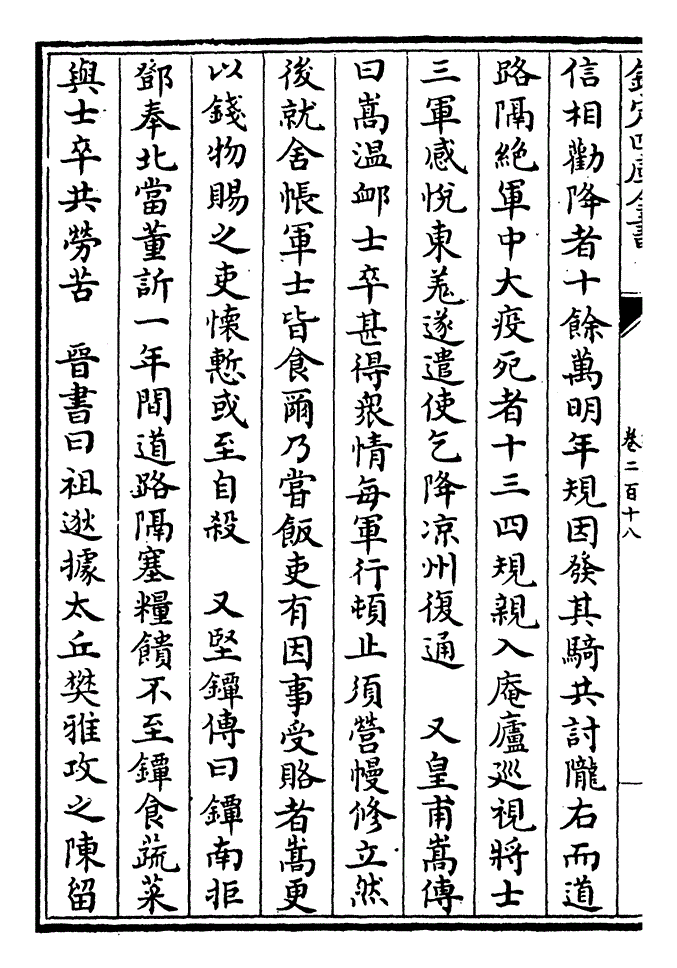 欽定四庫全書
卷二百十八
信相勸降者十餘萬明年規因發其騎共討隴右而道
路隔絶軍中大疫死者十三四規親入庵廬巡視將士
三軍感悅東羗遂遣使乞降凉州復通　又皇甫嵩傳
曰嵩温䘏士卒甚得衆情每軍行頓止須營幔修立然
後就舍帳軍士皆食爾乃嘗飯吏有因事受賂者嵩更
以錢物賜之吏懐慙或至自殺　又堅鐔傳曰鐔南拒
鄧奉北當董訢一年間道路隔塞糧饋不至鐔食蔬菜
與士卒共勞苦　晉書曰祖逖據太丘樊雅攻之陳留